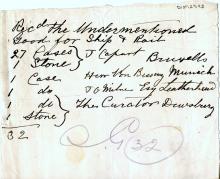 Rec'd the Undermentioned
Good for Ship & Rail
27 Cases } J Capart
1 Stone } Brussels
1 Case Herr Von Bissing Munich
1 do J G Milne Esq Leatherhead
1 do } The Curator Dewsbury
1 Stone }
32
S.G 32